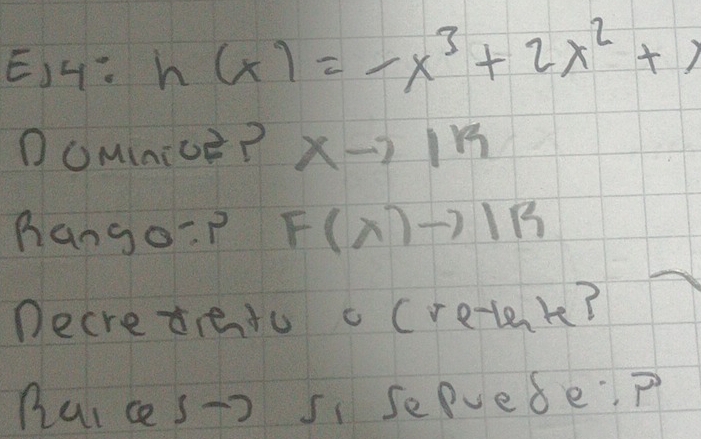 Ej4: h(x) = -x³ + 2x² +
Dominio=? x → ℝ
Rango=? F(x) → ℝ
o Creciente?
Raices → si se puede:?